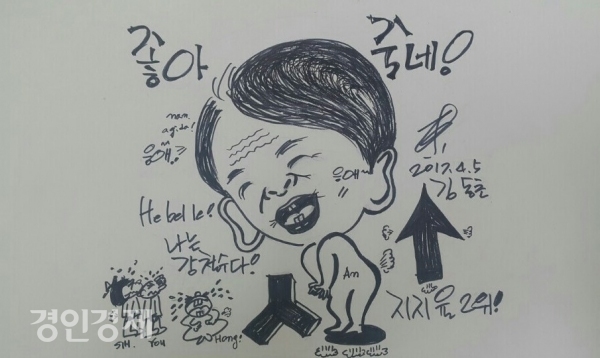 좋아
죽네!
nam
agida!
응애!
응애~
2017.4.5
김동훈
He belle!
나는
강철수다!
An
지지율 2위!
SIM. YOU
Hong!
경인경제